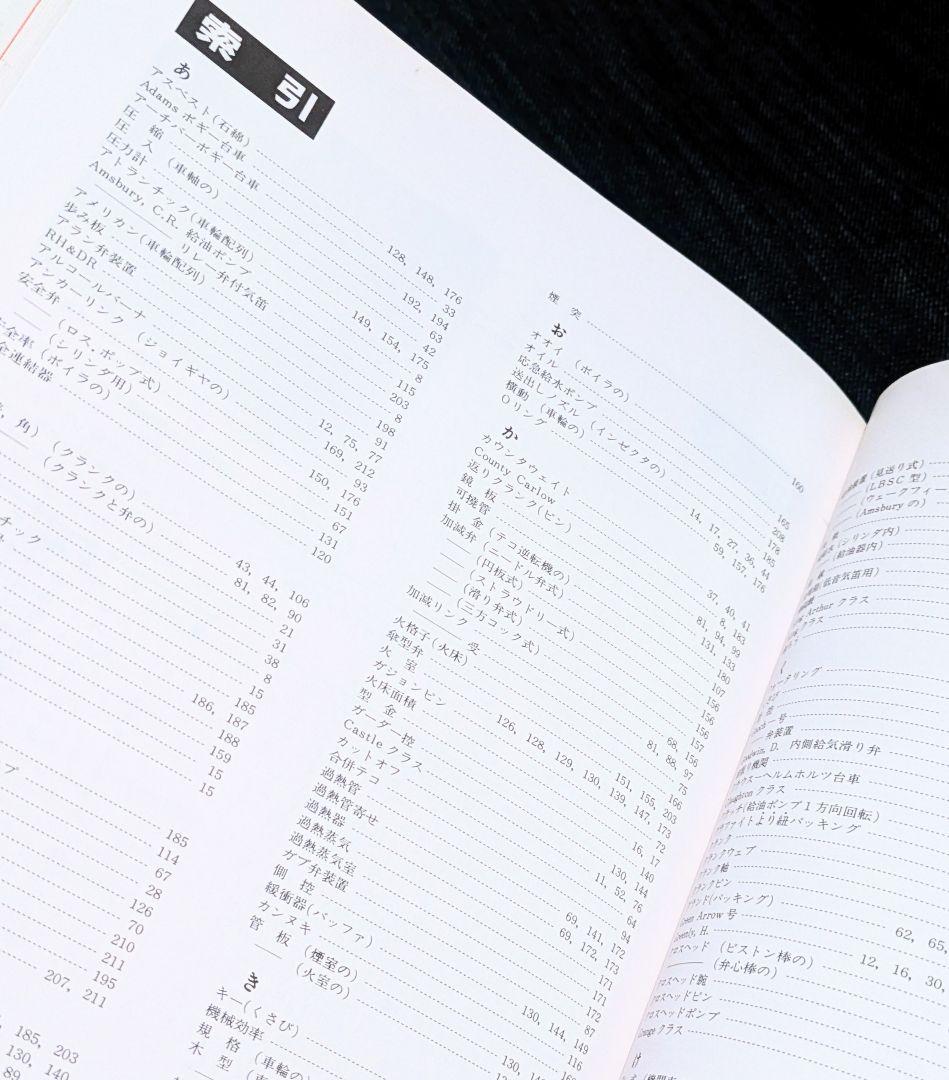 索引
あ
アスベスト(石綿) 128, 148, 176
Adams ボギー台車 33
アーチバーボギー台車 192, 194
圧縮 63
圧入 (車軸の) 42
圧力計 149, 154, 175
アトランチック(車輪配列) 8
Amsbury, C.R. 給油ポンプ 115
―― リレー弁付気笛 203
アメリカン(車輪配列) 8
歩み板 198
アラン弁装置 91
RH&DR 12, 75, 77
アルコールバーナ 169, 212
アンカーリンク (ジョイギヤの) 93
安全弁 150, 176
―― (ロス, ポップ式) 151
―― (シリンダ用) 67
全率 (ボイラの) 131
全連結器 120
角) (クランクの) 43, 44, 106
―― (クランクと弁の) 81, 82, 90
チック
21
31
38
8
15
186, 187
188
159
15
15
プ
185
114
67
28
126
70
210
211
195
207, 211
185, 203
130, 140
89
煙突 160
お
オオイ (ボイラの) 165
オイル 208
応急給水ポンプ 178
送出しノズル (インゼクタの) 185
横動 (車輪の) 14, 17, 27, 36, 44
Oリング 59, 157, 176
か
カウンタウェイト 37, 40, 41
County Carlow 8, 183
返りクランク(ピン) 81, 94, 99
鏡板 131, 133
可撓管 180
掛金 (テコ逆転機の) 107
加減弁 (ニードル弁式) 156
―― (円板式) 156
―― (ストラウドリ式) 156
―― (滑り弁式) 68, 156
―― (三方コック式) 157
加減リンク 81, 88, 97
―― 受 75
火格子(火床) 151, 155, 166
傘型弁 203
火室 126, 128, 129, 130, 139, 147, 173
ガションピン 72
火床面積 16, 17
型金 140
ガーダー控 130, 144
Castle クラス 11, 52, 76
カットオフ 64
合併テコ 94
過熱管 69, 141, 172
過熱管寄せ 69, 172, 173
過熱器 171
過熱蒸気 171
過熱蒸気室 172
ガブ弁装置 87
側控 130, 144, 149
緩衝器(バッファ) 116
カンヌキ
管板 (煙室の)
―― (火室の)
き
キー(くさび)
機械効率
規格 (車輪の)
木型
装置 (見送り式)
―― (LBSC 型)
(ウェークフィー
(Amsbury の)
(シリンダ内)
(給油器内)
(低音気笛用)
Arthur クラス
クラス
号
弁装置
D. 内側給気滑り弁
機架
ヘルムホルツ台車
クラス
(給油ポンプ1方向回転)
ファイトより紐パッキング
ランク
ランクウェブ
ランク軸
ランクピン
ランド(パッキング)
een Arrow 号 62, 65,
H.
ロスヘッド (ピストン棒の) 12, 16, 30,
―― (弁心棒の)
ロスヘッド腕
ロスヘッドピン
ロスヘッドポンプ
クラス
け